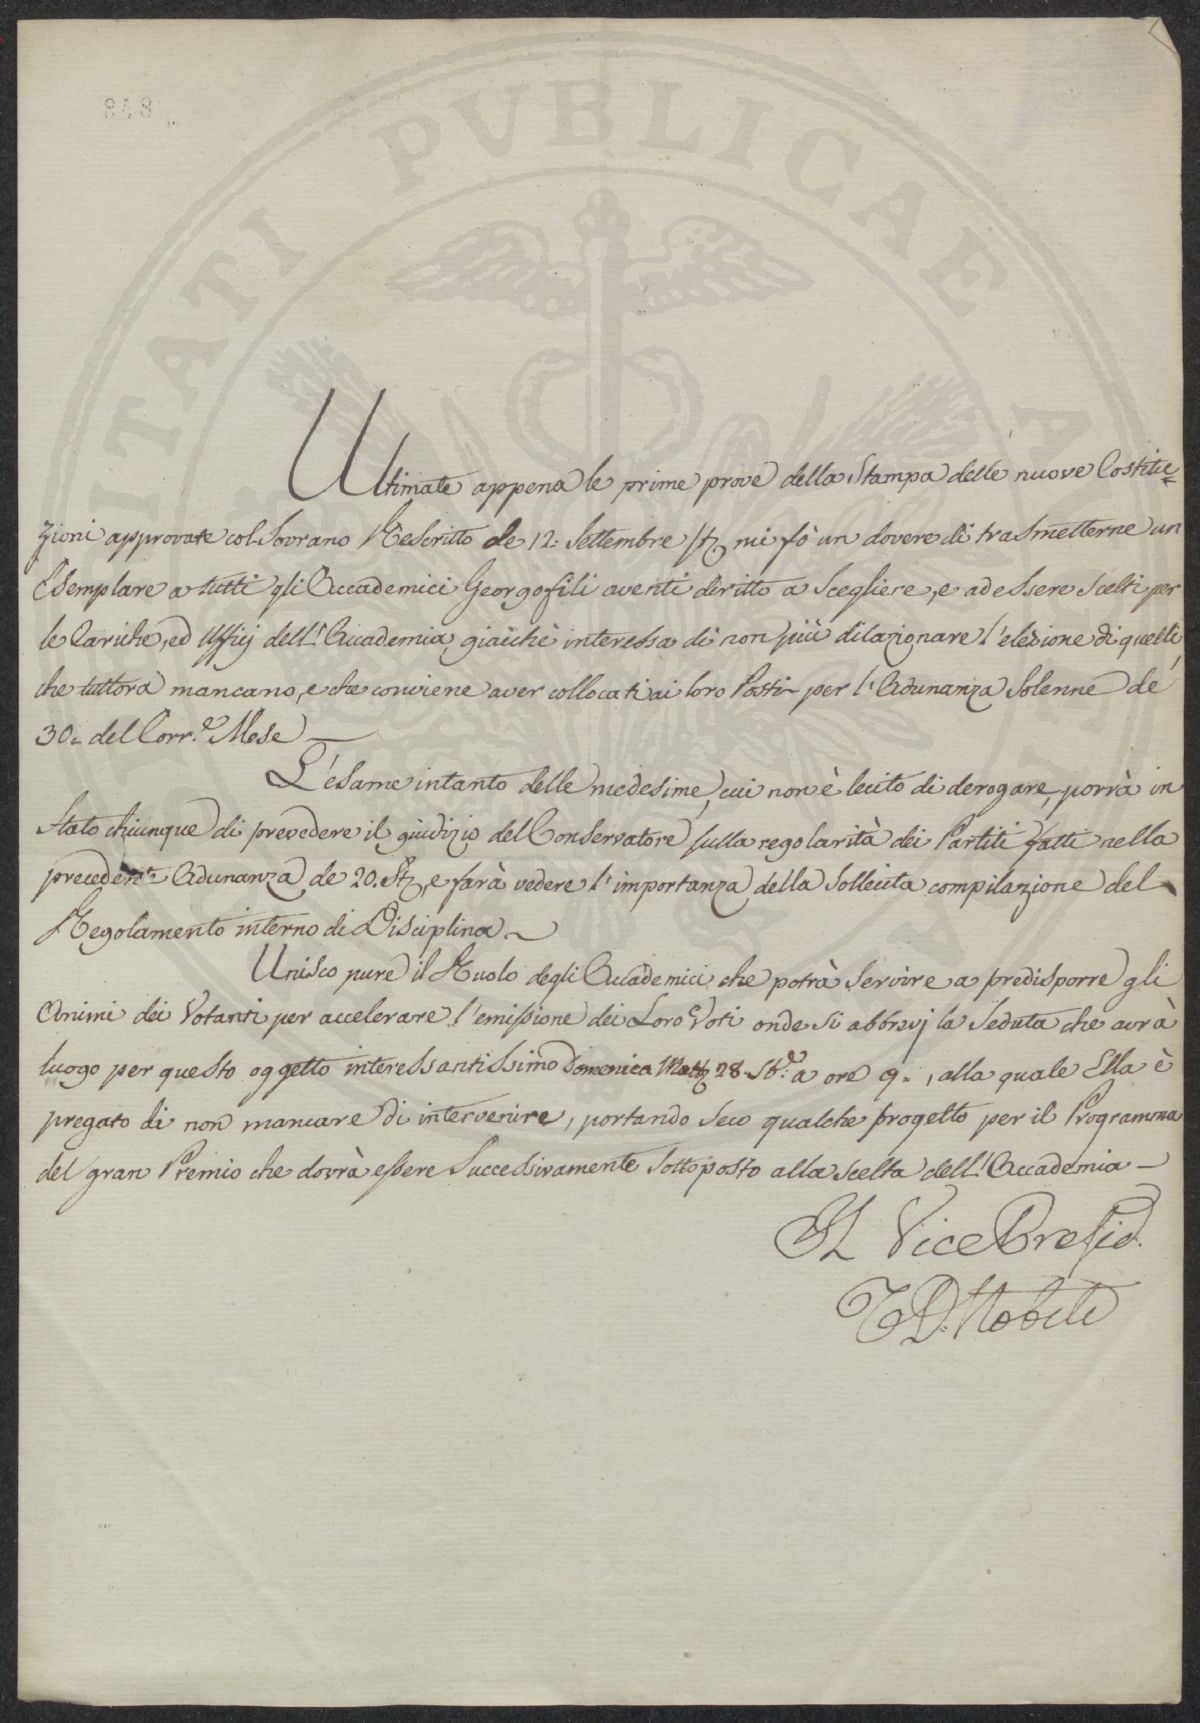 848
PVBLICAE
TATI
A
Ultimate appena le prime prove della Stampa delle nuove Costitu=
zioni approvate col Sovrano Rescritto de 12. Settembre mi fò un dovere di trasmetterne un
Esemplare a tutti gli Accademici Georgofili aventi diritto a Scegliere, e ad essere scelti per
le Cariche, ed Uffizj dell'Accademia, giacchè interessa di non più dilazionare l'elezione di quelli,
che tuttora mancano, e che conviene aver collocati ai loro Posti per l'Adunanza Solenne de
30. del Corr.e Mese
L'esame intanto delle medesime, cui non è lecito di derogare, porrà in
Stato chiunque di prevedere il giudizio del Conservatore sulla regolarità dei Partiti fatti nella
preceden.te Adunanza de 20. St., e farà vedere l'importanza della Sollecita compilazione del
Regolamento interno di Disciplina
Unisco pure il Ruolo degli Accademici che potrà Servire a predisporre gli
animi dei Votanti per accelerare l'emissione dei Loro Voti onde Si abbrevj la Seduta che avrà
luogo per questo oggetto interessantissimo Domenica Matt. 28. St.e a ore 9., alla quale Ella è
pregato di non mancare di intervenire, portando Seco qualche progetto per il Programma
del gran Premio che dovrà essere Successivamente Sottoposto alla Scelta dell'Accademia
Il Vice Presid.
T D. Nobili